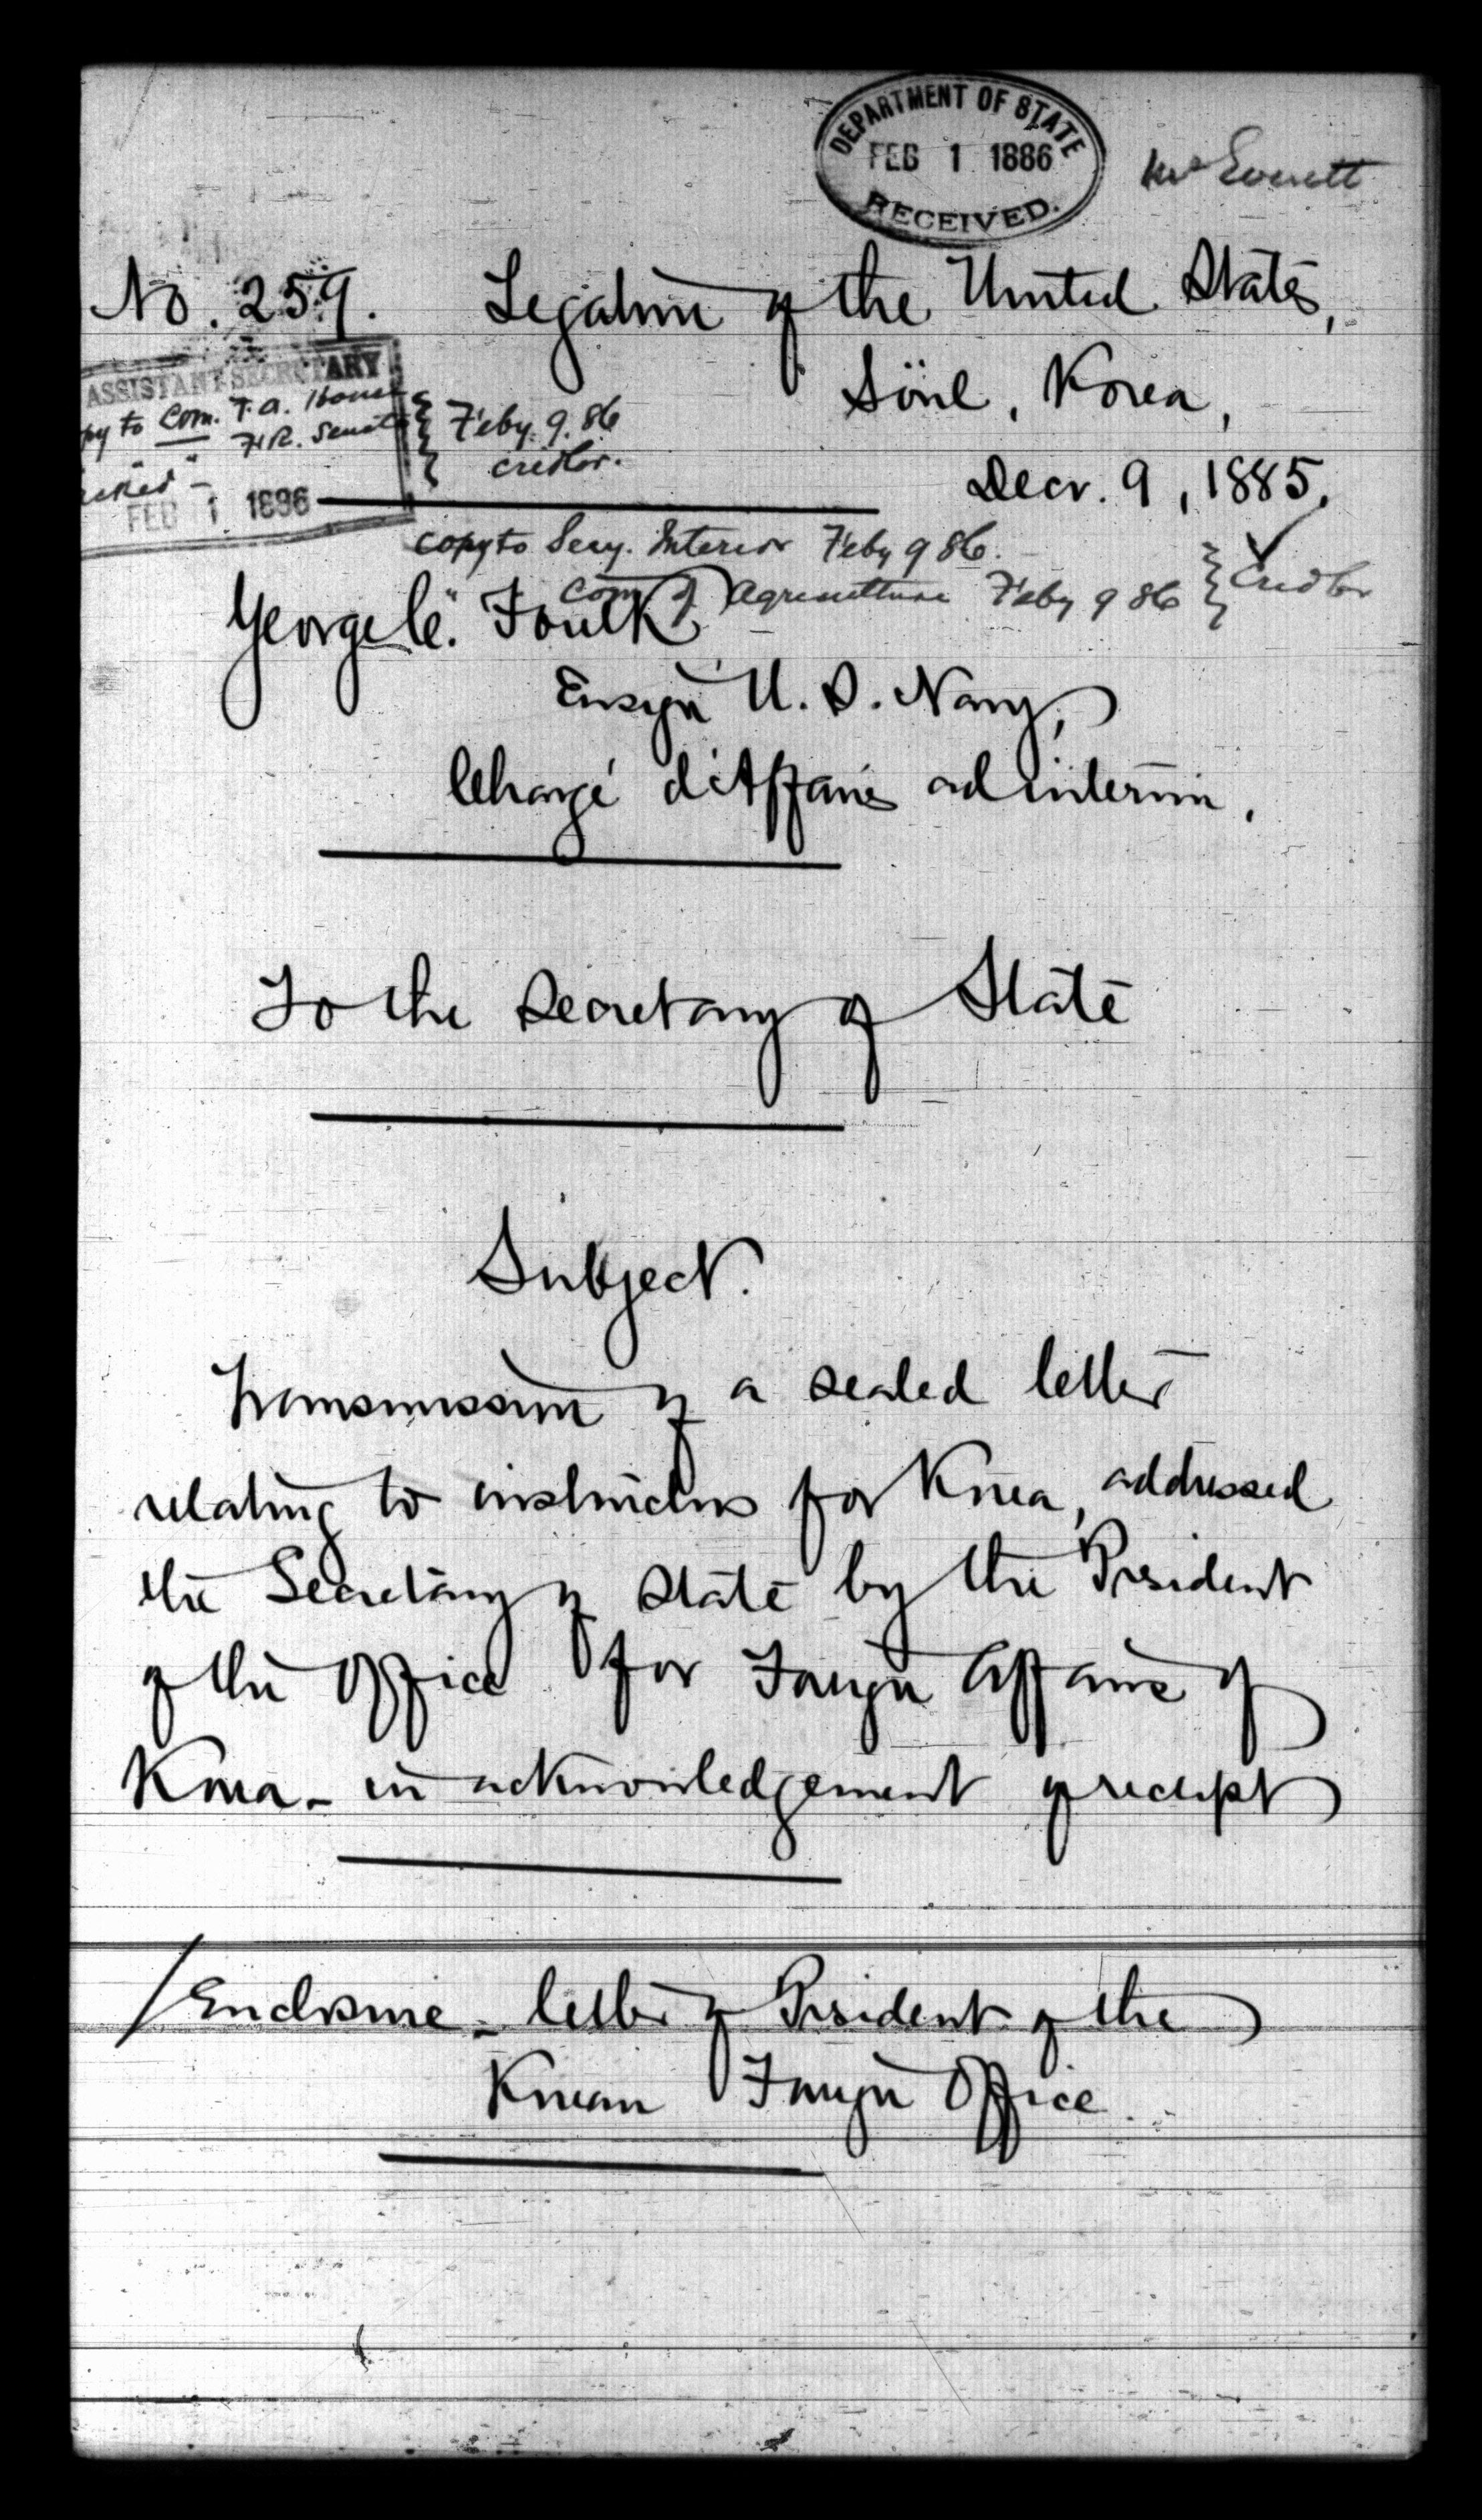 DEPARTMENT OF STATE
FEB 1 1886
RECEIVED.
Mr Everett
No. 259. Legation of the United States,
Söul, Korea,
ASSISTANT SECRETARY
py to Com. F. A. House
H.R. Senate
Feby. 9. 86
cridler.
FEB 1 1886
Decr. 9, 1885.
copy to Secy. Interior Feby 9 86.
" " Com of Agriculture Feby 9 86
Cridler
George C. Foulk
Ensign U. S. Navy,
Chargé d'Affaires ad interim.
To the Secretary of State
Subject.
Transmission of a sealed letter
relating to instructors for Korea, addressed
the Secretary of State by the President
of the Office for Foreign Affairs of
Korea - in acknowledgement of receipt
/ Enclosure - letter of President of the
Korean Foreign Office